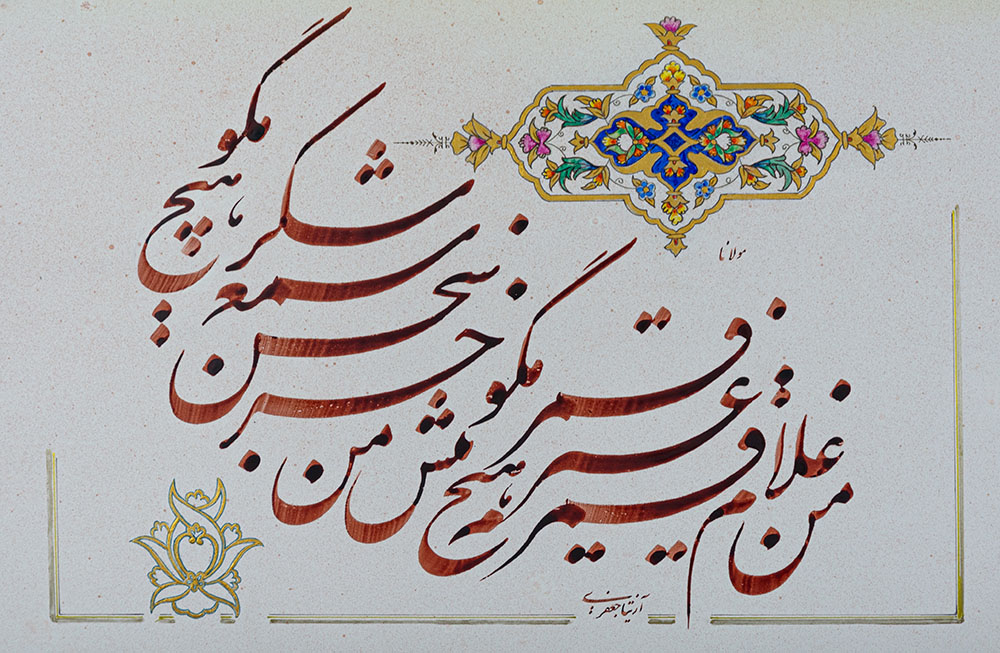 مولانا
من غلام قمرم غیر قمر هیچ مگو
پیش من جز سخن شمع و شکر هیچ مگو
آزیتا